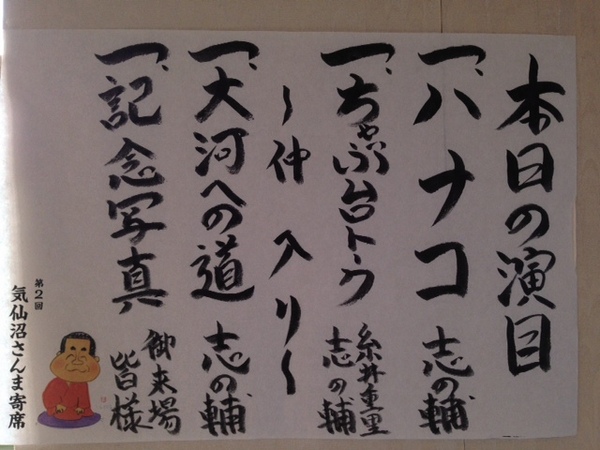 本日の演目
一、ハナコ 志の輔
一、ちゃぶ台トーク 糸井重里 志の輔
〜仲入り〜
一、大河への道 志の輔
一、記念写真 御来場 皆様
第2回
気仙沼さんま寄席